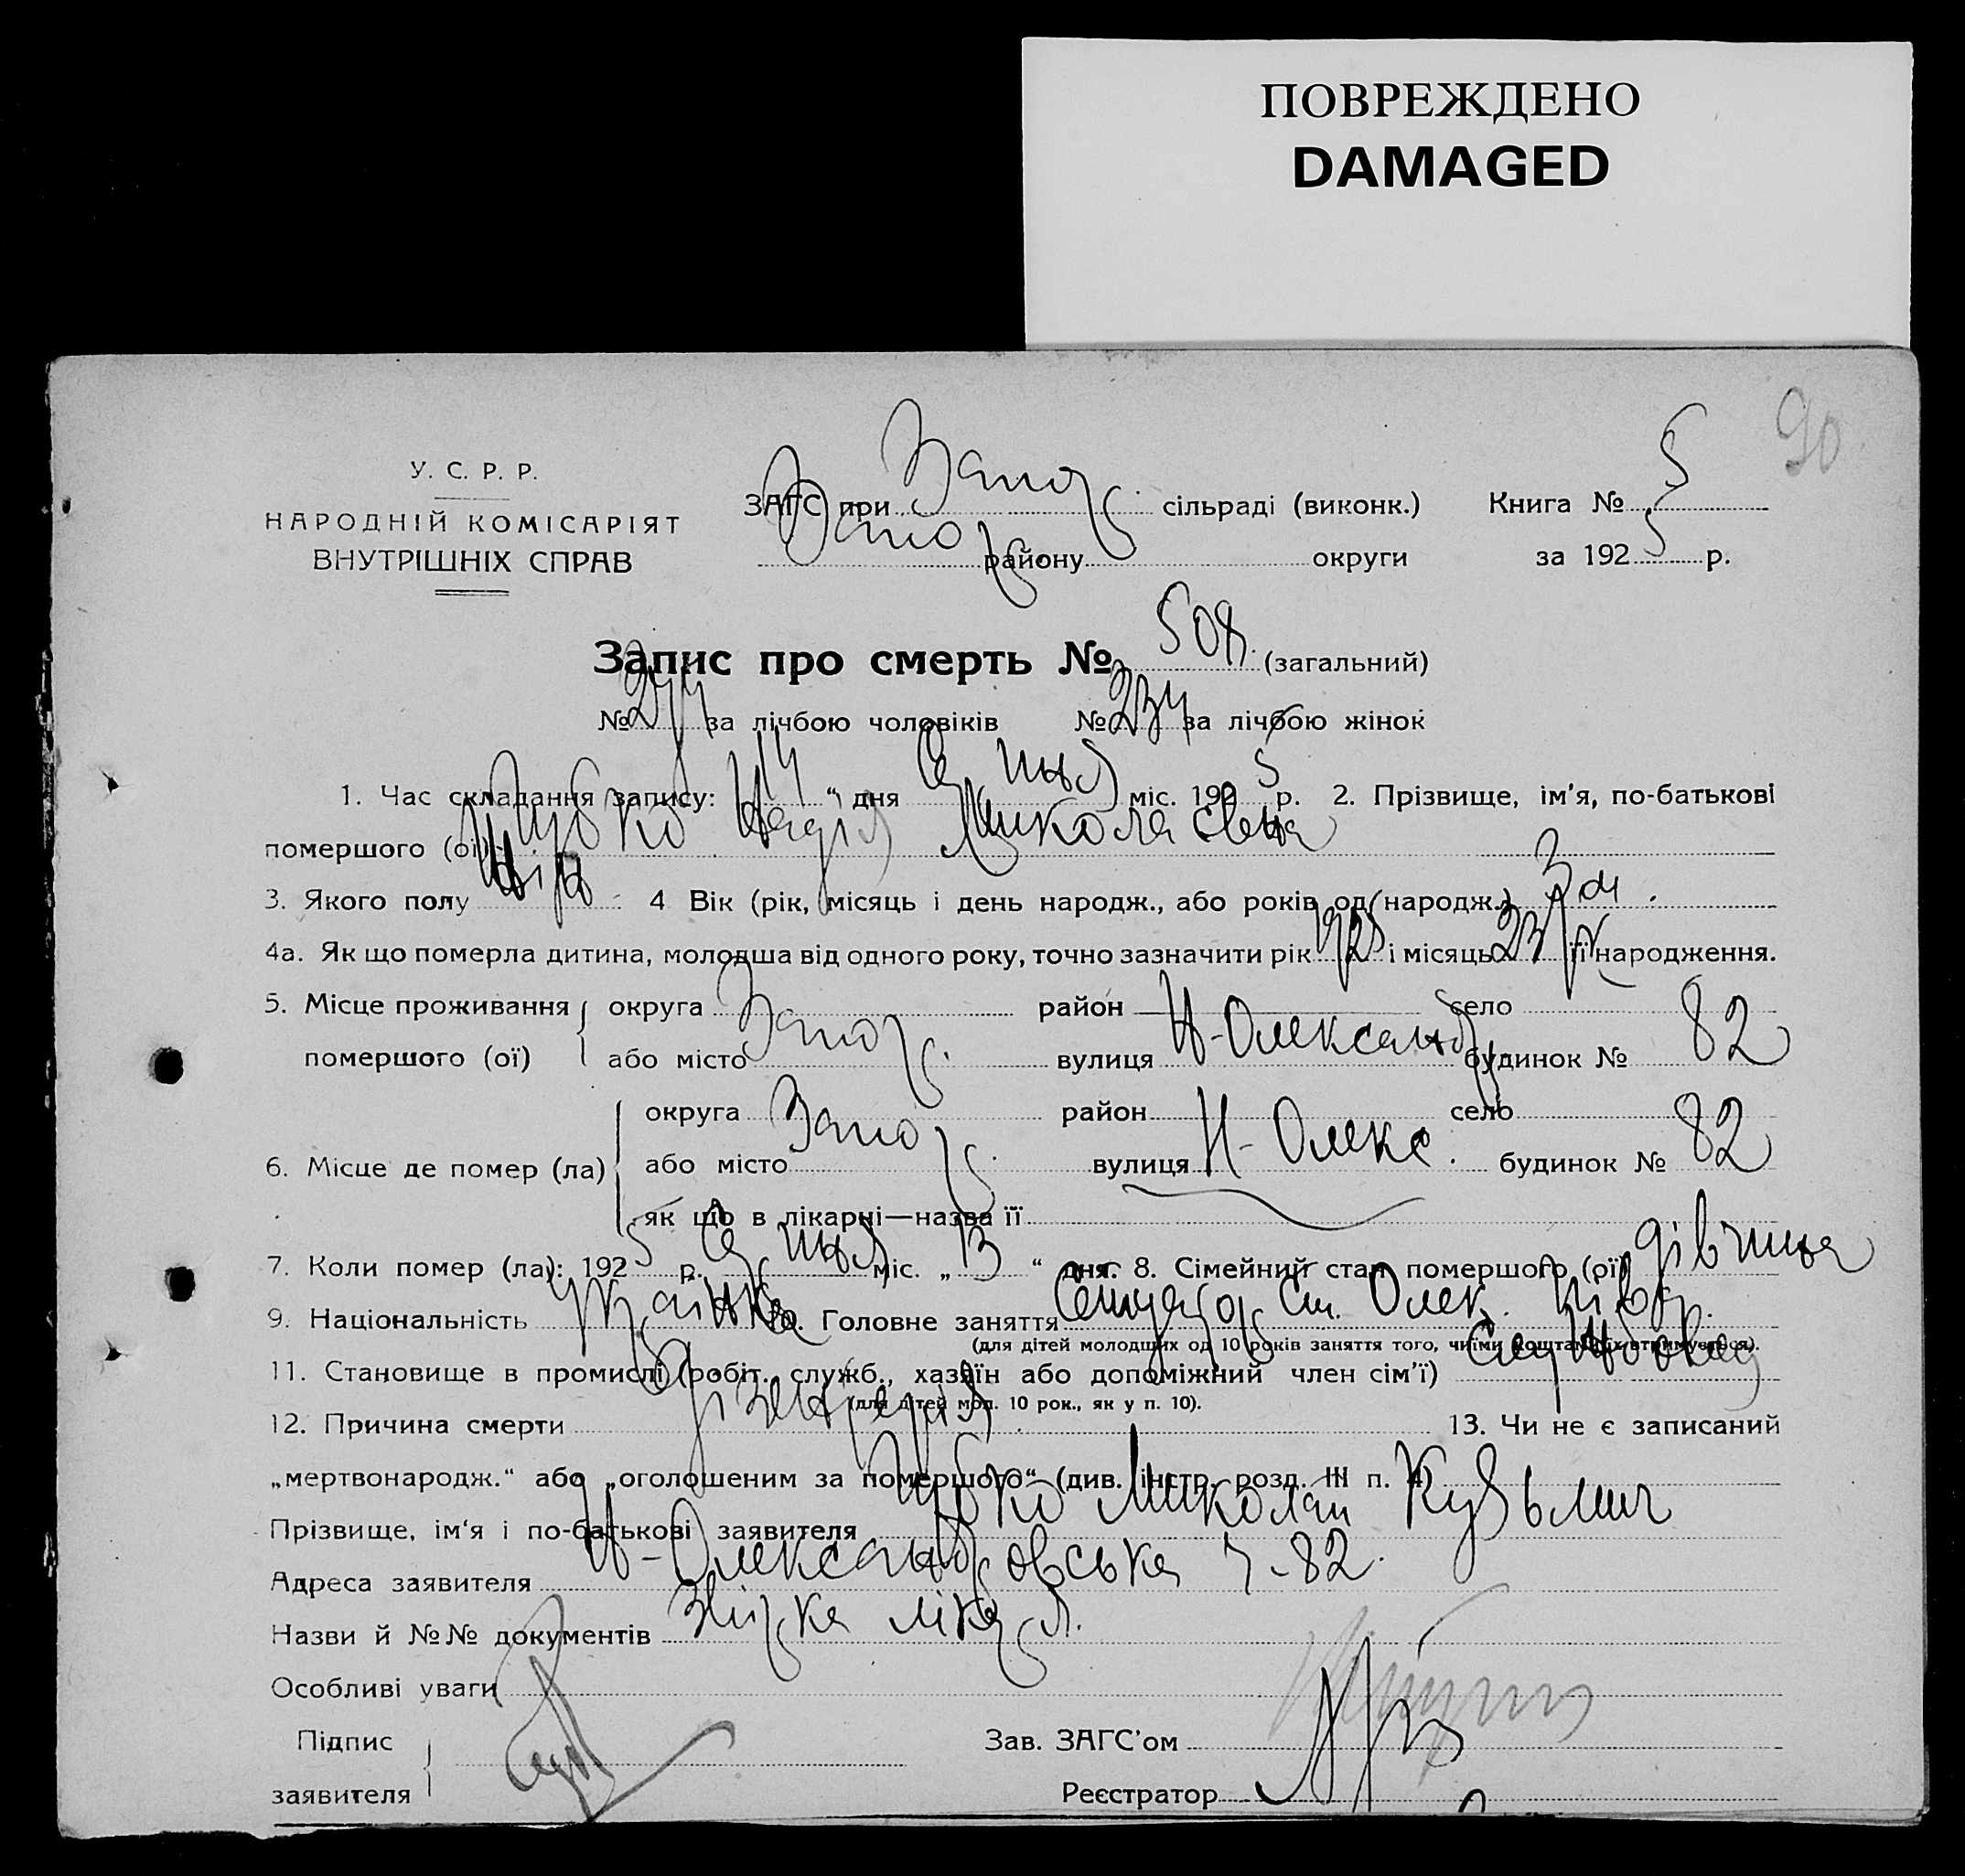 ПОВРЕЖДЕНО
DAMAGED
90
У. С. Р. Р.
НАРОДНІЙ КОМІСАРІЯТ
ВНУТРІШНІХ СПРАВ
ЗАГС при Запор. сільраді (виконк.) Книга № 5
Запор. району округи за 1925 р.
Запис про смерть № 508 (загальний)
№ 274 за лічбою чоловіків № 234 за лічбою жінок
1. Час складання запису: 14 “ дня Серпня міс. 1925 р. 2. Прізвище, ім’я, по-батькові
помершого (ої) Надія Миколаєвна
3. Якого полу жін 4 Вік (рік, місяць і день народж., або років од народж.) 3 м.
4а. Як що померла дитина, молодша від одного року, точно зазначити рік 1925 і місяць 23/ її народження.
5. Місце проживання округа район село
помершого (ої) або місто Запор. вулиця Н-Олександр. будинок № 82
округа район село
6. Місце де помер (ла) або місто Запор. вулиця Н-Олекс. будинок № 82
як що в лікарні—назва її
7. Коли помер (ла): 1925 р. Серпня міс. „ 13 “ дня. 8. Сімейний стан помершого (ої) дівчина
9. Національність Українка 10. Головне заняття ст. Олек.
(для дітей молодших од 10 років заняття того, чиїми коштами їх втримується).
11. Становище в промислі (робіт., служб., хазяїн або допоміжний член сім’ї) Службовец
(для дітей мол. 10 рок., як у п. 10).
12. Причина смерти дізентерія 13. Чи не є записаний
„мертвонародж.“ або „оголошеним за помершого“ (див. інстр. розд. III п. 4)
Прізвище, ім‘я і по-батькові заявителя Миколай Кузьмич
Адреса заявителя Н-Олександровська ч-82.
Назви й №№ документів лікаря.
Особливі уваги
Підпис
заявителя
Зав. ЗАГС’ом
Реєстратор